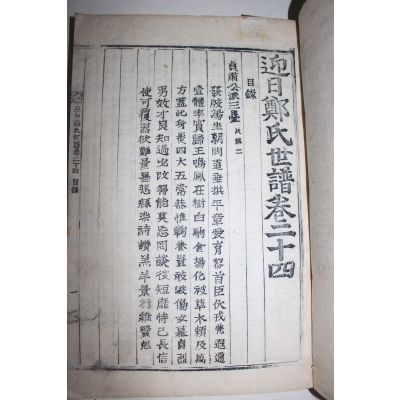 迎日鄭氏世譜卷二十四
目錄
貞肅公派三疊
發殷湯坐朝問道垂拱平章愛育黎首臣伏戎羌遐邇
壹體率賓歸王鳴鳳在樹白駒食場化被草木賴及萬
方蓋此身髮四大五常恭惟鞠養豈敢毀傷女慕貞烈
男效才良知過必改得能莫忘罔談彼短靡恃己長信
使可覆器欲難量墨悲絲染詩讚羔羊景行維賢剋
迎日鄭氏世譜卷二十四 目錄